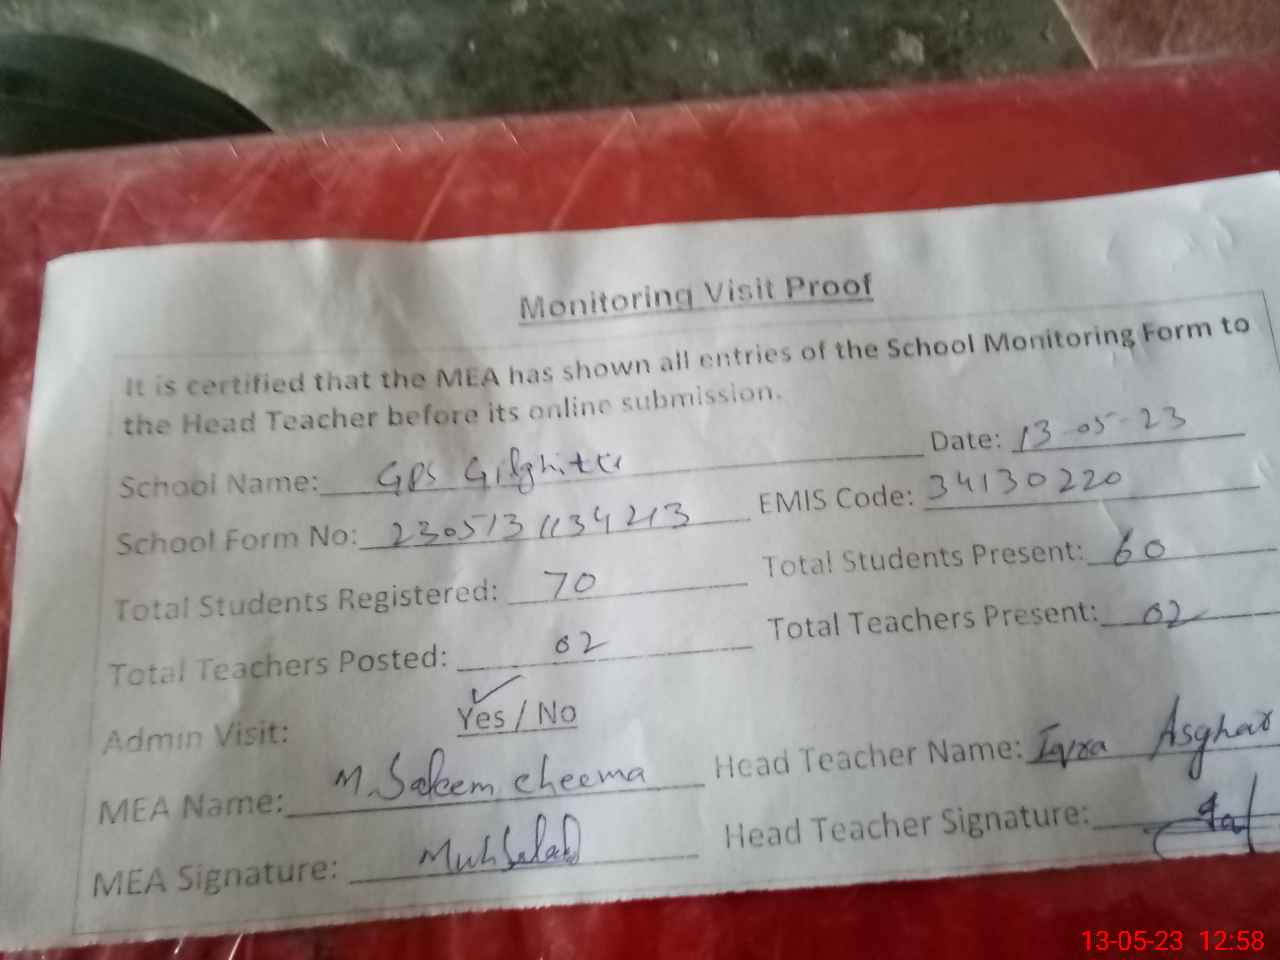 Monitoring Visit Proof
It is certified that the MEA has shown all entries of the School Monitoring Form to
the Head Teacher before its online submission.
School Name: GPS Date: 13-05-23
School Form No: EMIS Code: 34130220
Total Students Registered: 70 Total Students Present: 60
Total Teachers Posted: 02 Total Teachers Present: 02
Admin Visit: Yes / No
MEA Name: M. Saleem cheema Head Teacher Name: Iqra Asghar
MEA Signature: Head Teacher Signature:
13-05-23 12:58